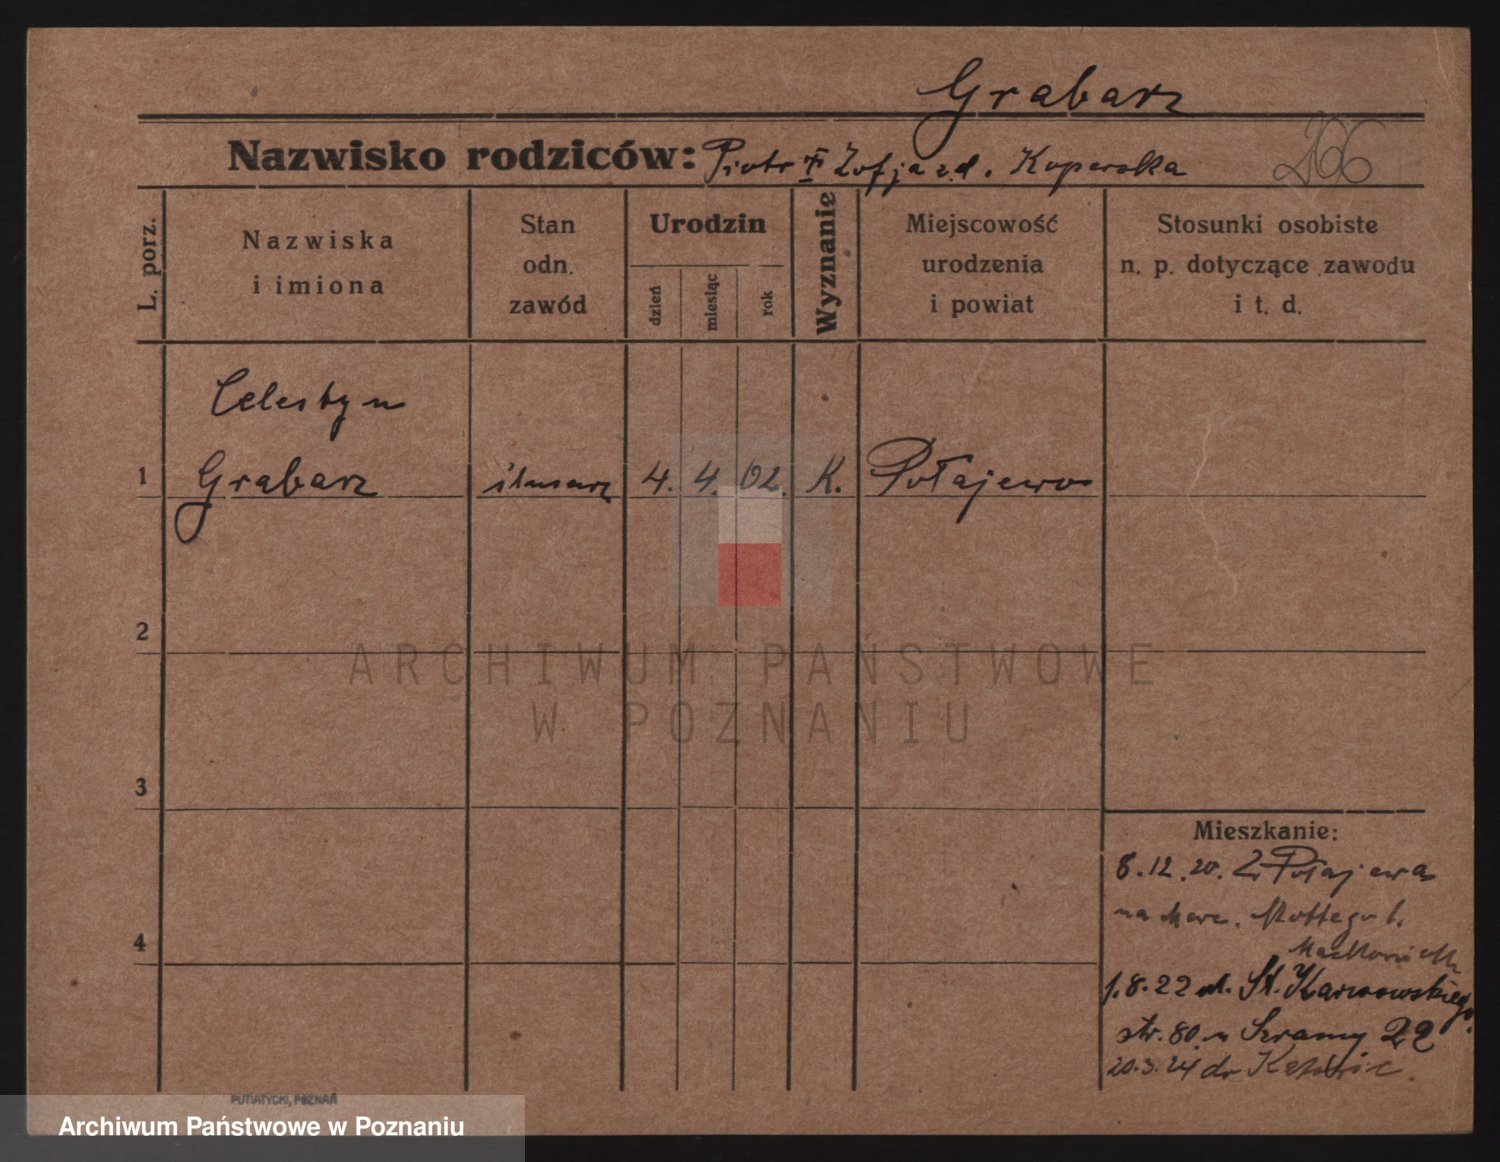 Grabarz
Nazwisko rodziców: Piotr Zofja z d. Koperska
L. porz.
Nazwiska
i imiona
Stan
odn.
zawód
Urodzin
dzień
miesiąc
rok
Wyznanie
Miejscowość
urodzenia
i powiat
Stosunki osobiste
n. p. dotyczące zawodu
i t. d.
Celestyn
1 Grabarz ślusarz 4. 4. 02. K. Połajewo
2
3
4
ARCHIWUM PAŃSTWOWE
W POZNANIU
Mieszkanie:
8.12.20. Z Połajewa
na Marc. Mottego
1.8.22 ul. St. Karwowskiego
str. 80 u Szramy 22
20.3.24 do Katowic.
PUTIATYCKI, POZNAŃ
Archiwum Państwowe w Poznaniu